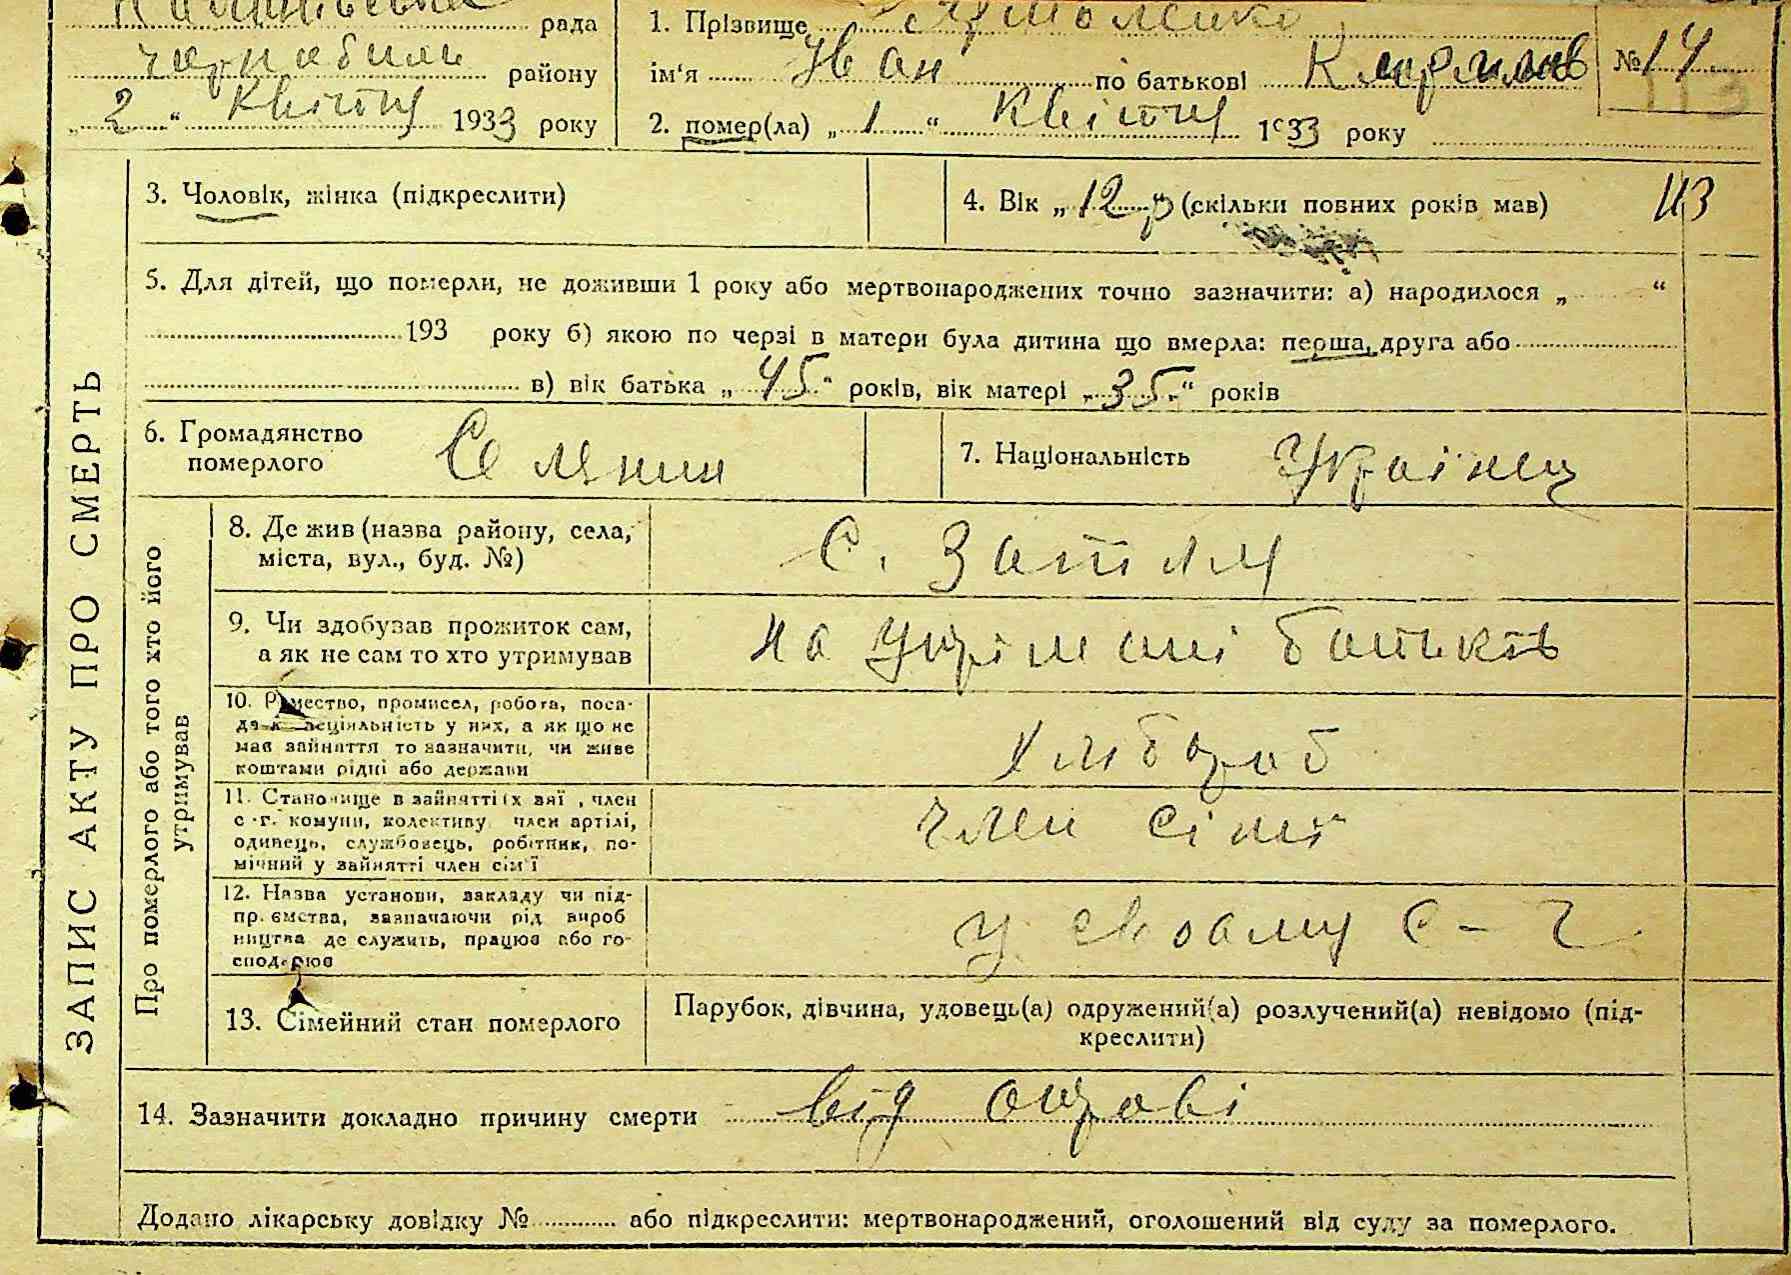 рада
1. Прізвище
чорнобили району
ім'я Іван по батькові Кирилів
№ 14
„ 2 “ Квітня 1933 року
2. помер(ла) „ 1 “ Квітня 1933 року
3. Чоловік, жінка (підкреслити)
4. Вік „ 12 р (скільки повних років мав)
113
5. Для дітей, що померли, не доживши 1 року або мертвонароджених точно зазначити: а) народилося „ “
193 року б) якою по черзі в матери була дитина що вмерла: перша, друга або
в) вік батька „ 45 “ років, вік матері „ 35 “ років
6. Громадянство
померлого
Селянин
7. Національність Украінец
ЗАПИС АКТУ ПРО СМЕРТЬ
Про померлого або того хто його
утримував
8. Де жив (назва району, села,
міста, вул., буд. №)
С.
9. Чи здобував прожиток сам,
а як не сам то хто утримував
на утрімані батьків
10. промисел, робота, поса-
у них, а як що не
має зайняття то зазначити, чи живе
коштами рідні або держави
хліб роб
11. Становище в зайнятті член
с.-г. комуни, колективу, член артілі,
одинець, службовець, робітник, по-
мічний у зайнятті член сім'ї
член сімї
12. Назва установи, закладу чи під-
приємства, зазначаючи рід вироб
ництва де служить, працює або го-
сподарює
у своаму с-г
13. Сімейний стан померлого
Парубок, дівчина, удовець(а) одружений(а) розлучений(а) невідомо (під-
креслити)
14. Зазначити докладно причину смерти від
Додано лікарську довідку № або підкреслити: мертвонароджений, оголошений від суду за померлого.